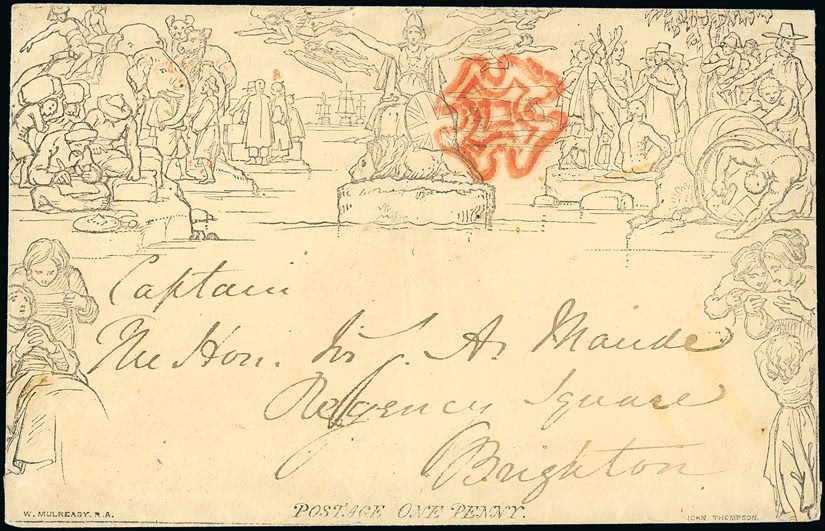 Captain
The Hon. Sir J. A. Maude
Regency Square
Brighton
W. MULREADY. R.A.
POSTAGE ONE PENNY.
JOHN THOMPSON.